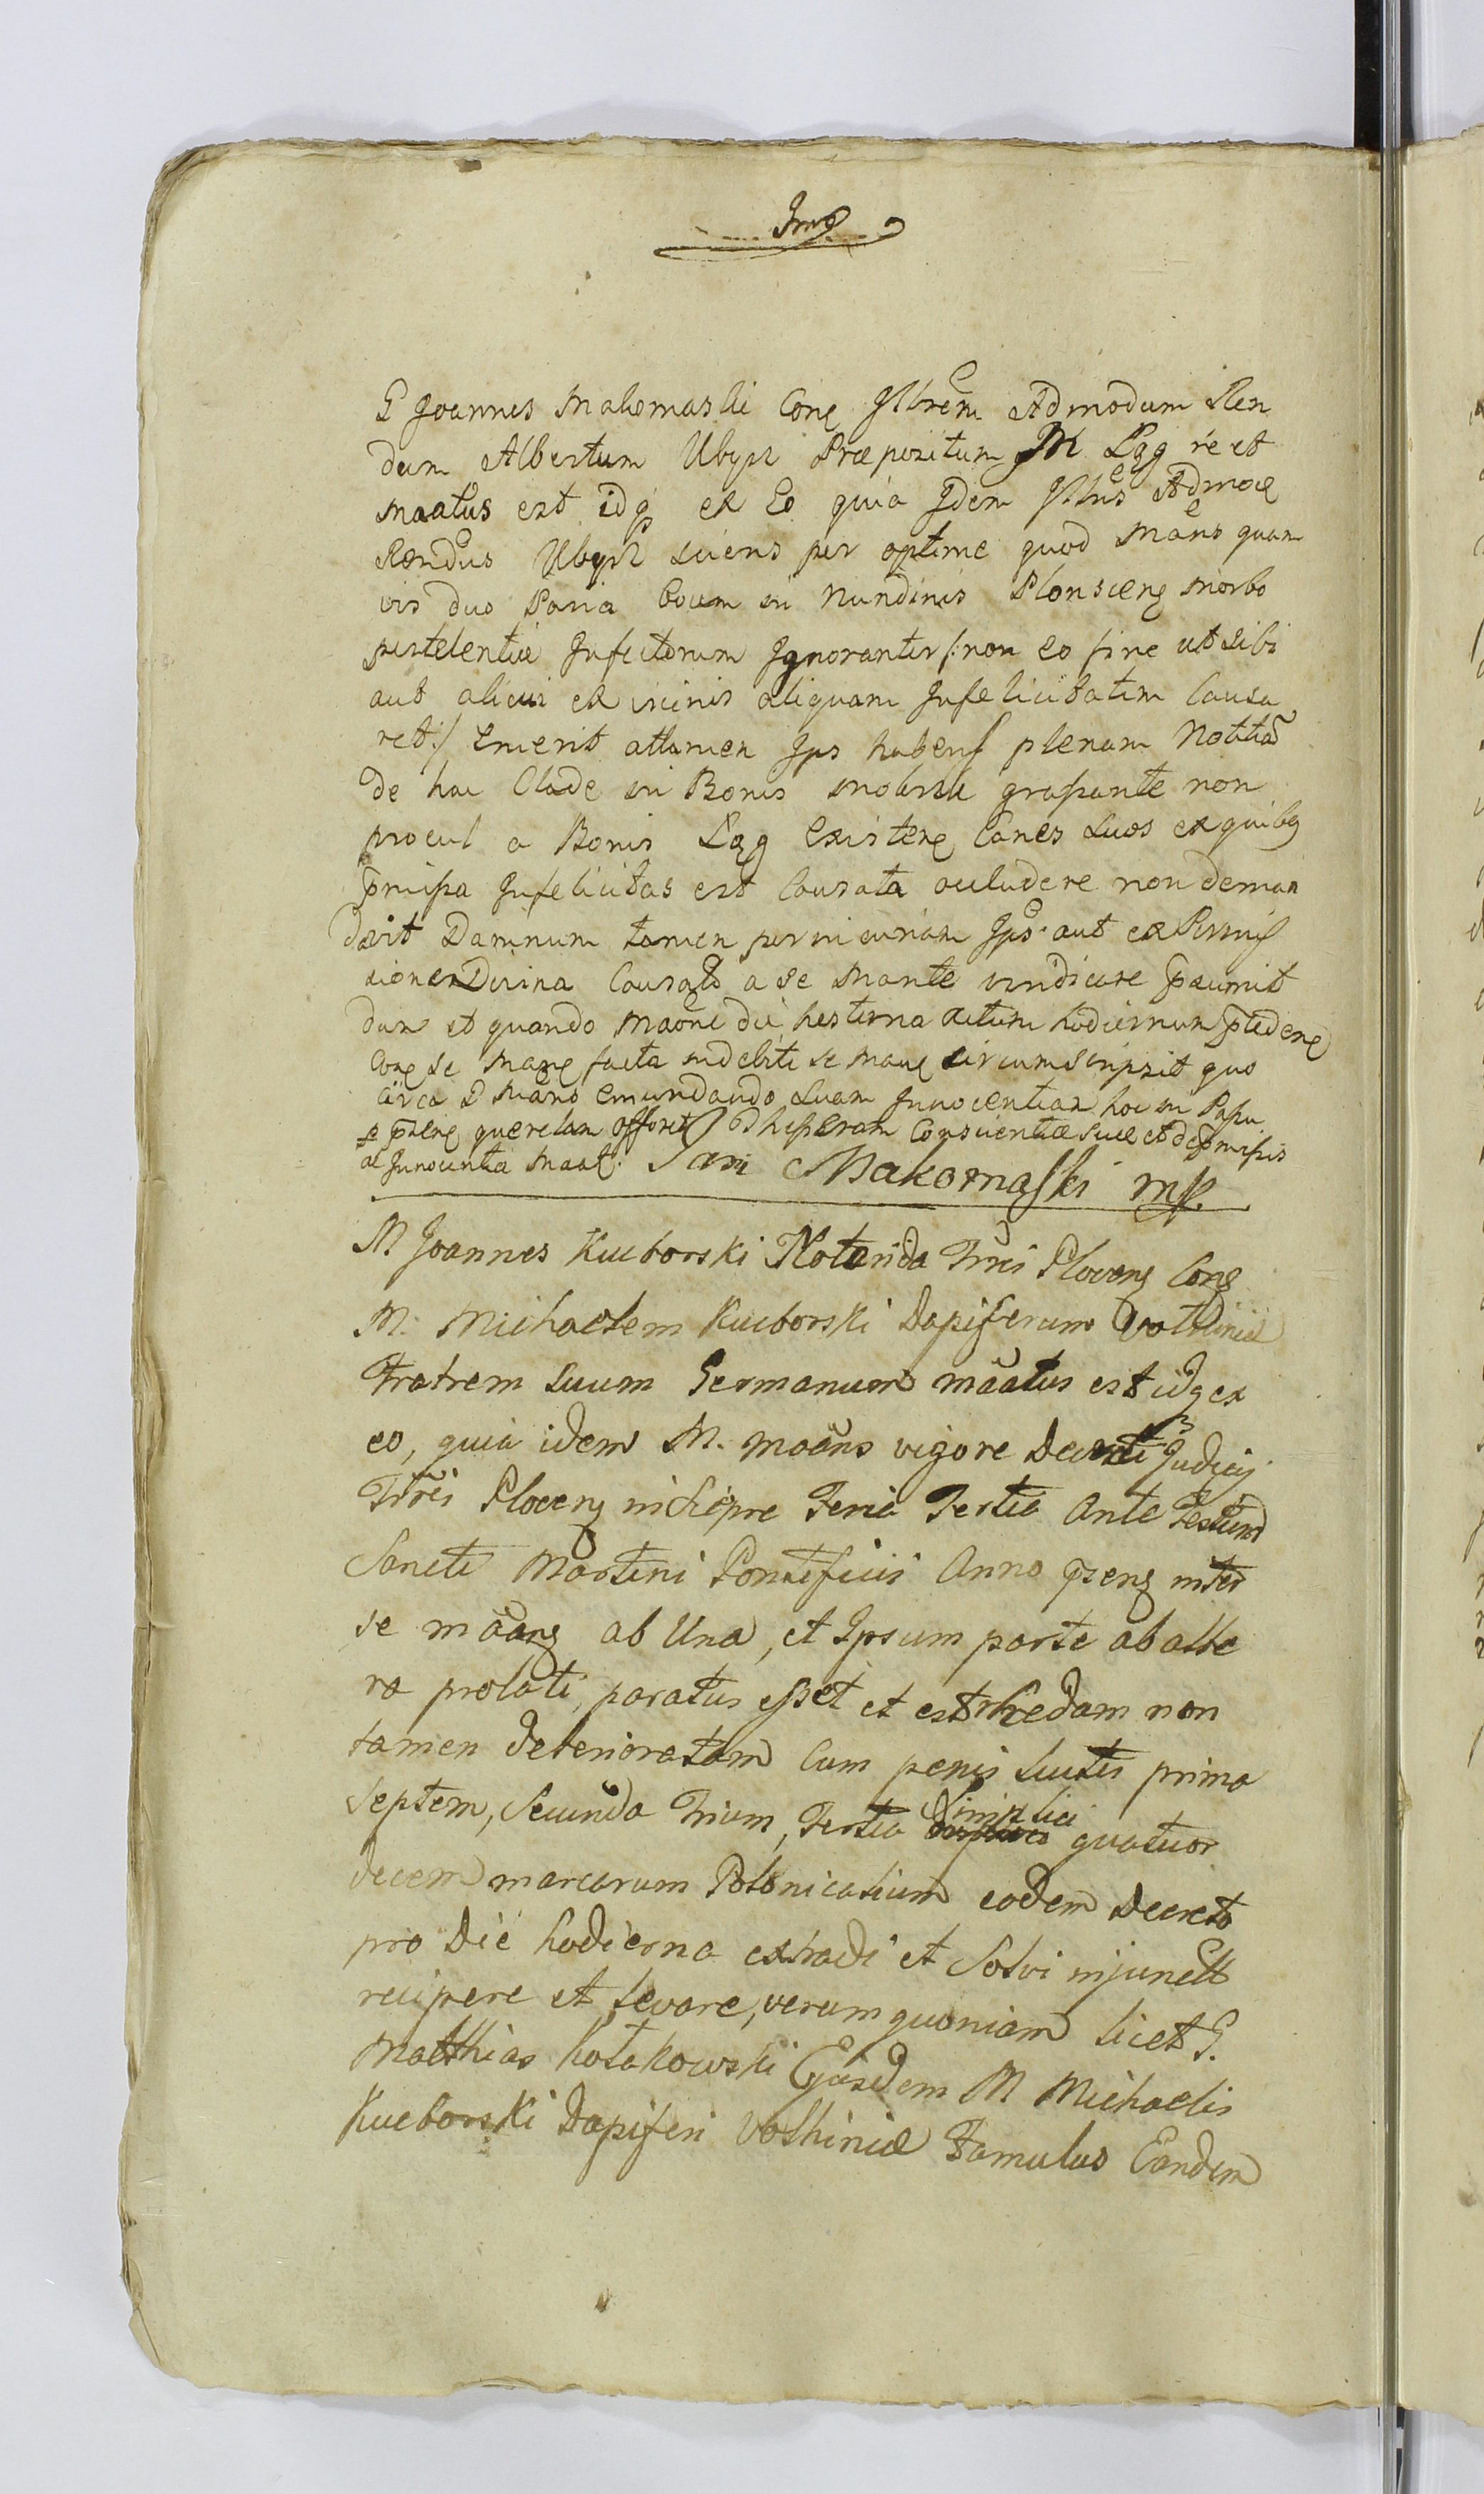 Imo
G Joannes Makomaski Cong Illrem Admodum Ren
dum Albertum Ubysz Præpozitum M Lgg re et
maatus est idq ex Eo quia Idem Illris Admoe
Rendus Ubysz sciens per optime quod Mans quam
vis duo Paria boum in Nundinis Plonsceng morbo
pestelentiæ Infectorum Ignoranter /:non eo fine ut sibi
aut alicui ex vicinis aliquam Infelicitatem Causa
ret:/ Emerit attamen Ips habens plenam Notitia
de hac Clade in Bonis grassante non
procul a Bonis Lgg Existeng Canes Suos ex quibq
pmissa Infelicitas est Causata occludere non deman
davit Damnum tamen per incuriam Ips aut ex Permis
sione Divina Causato a se Mante vindicare psumit
dum et quando Maone die hesterna actum hodiernum pcedeng
Cong se Mang facta indebite se Mang circumscripsit quo
circa G Mans Emundando Suam Innocentiam hoc in Passu
pseng querelam offert ad hessuram Conscientiæ suæ et de pmissis
ac Innocentia Maat. Jan Makomaski mp.
M Joannes Kucborski Notarida Trris Ploceng Cong
M. Michaelem Kucborski Dapiferum Volhiniæ
Fratrem suum Germanum maatus est idq ex
eo, quia idem M. maans vigore Decreti Judicij
Trris Ploceng in Sieprc Feria Tertia Ante Festum
Sancti Martini Pontificis Anno pseng inter
se maang ab Una, et Ipsum parte ab alte
ra prolati, paratus esset et est rhedam non
tamen deterioratam Cum penis luitis prima
septem, Secunda Trium, Tertia Simplici quatuor
decem marcarum Polonicalium eodem Decreto
pro Die hodierna extradi et Solvi injunctt
recipere et levare, verum quoniam licet G.
Matthias Kotakowski Ejusdem M Michaelis
Kucborski Dapiferi Volhiniæ Famulus Eandem